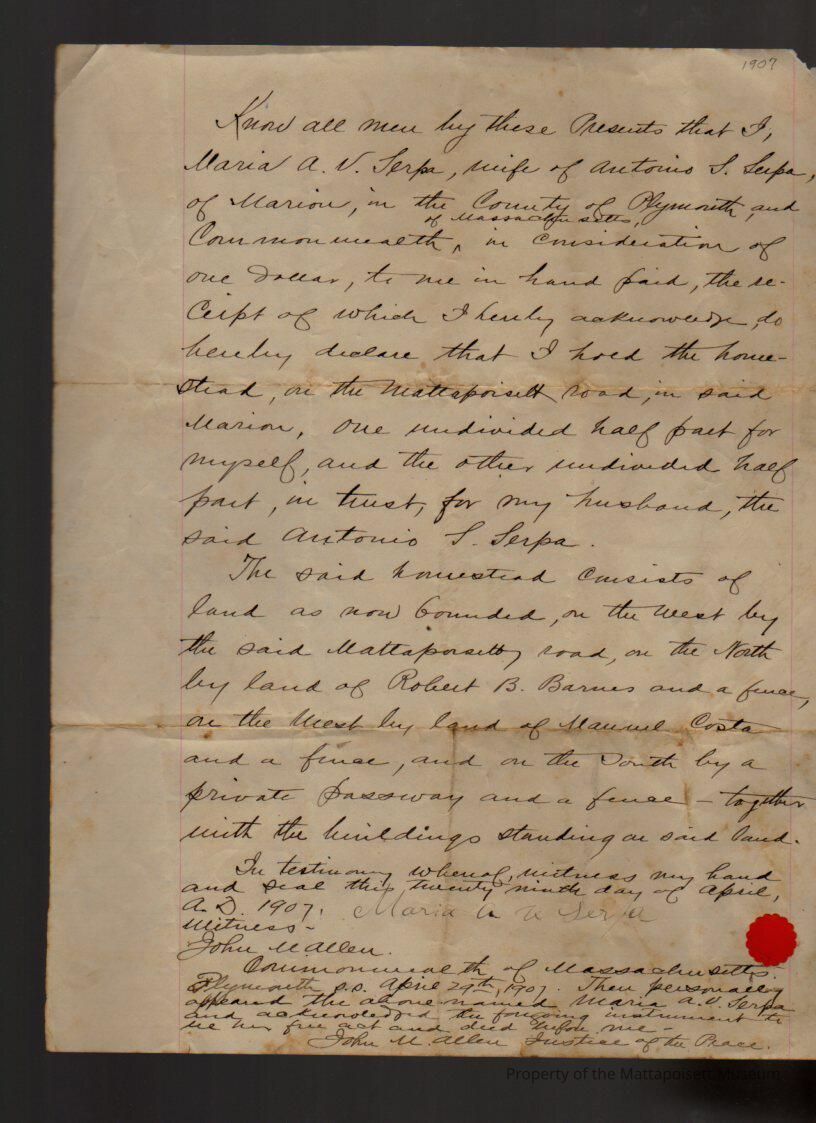 1907
Know all men by these Presents that I,
Maria A. V. Serpa, wife of Antonio S. Serpa,
of Marion, in the County of Plymouth, and
of Massachusetts,
Commonwealth ^ in consideration of
one Dollar, to me in hand paid, the re-
ceipt of which I hereby acknowledge, do
hereby declare that I hold the home-
stead, on the Mattapoisett road, in said
Marion, one undivided half part for
myself, and the other undivided half
part, in trust, for my husband, the
said Antonio S. Serpa.
The said homestead consists of
land as now bounded, on the West by
the said Mattapoisett road, on the North
by land of Robert B. Barnes and a fence,
on the West by land of Manuel Costa
and a fence, and on the South by a
private passway and a fence - together
with the buildings standing on said land.
In testimony whereof, witness my hand
and seal this twenty ninth day of April,
A.D. 1907. Maria A V Serpa
Witness-
John M Allen.
Commonwealth of Massachusetts.
Plymouth s.s. April 29th, 1907. Then personally
appeared the above named Maria A. V. Serpa
and acknowledged the foregoing instrument to
be her free act and deed before me-
John M. Allen Justice of the Peace.
Property of the Mattapoisett Museum